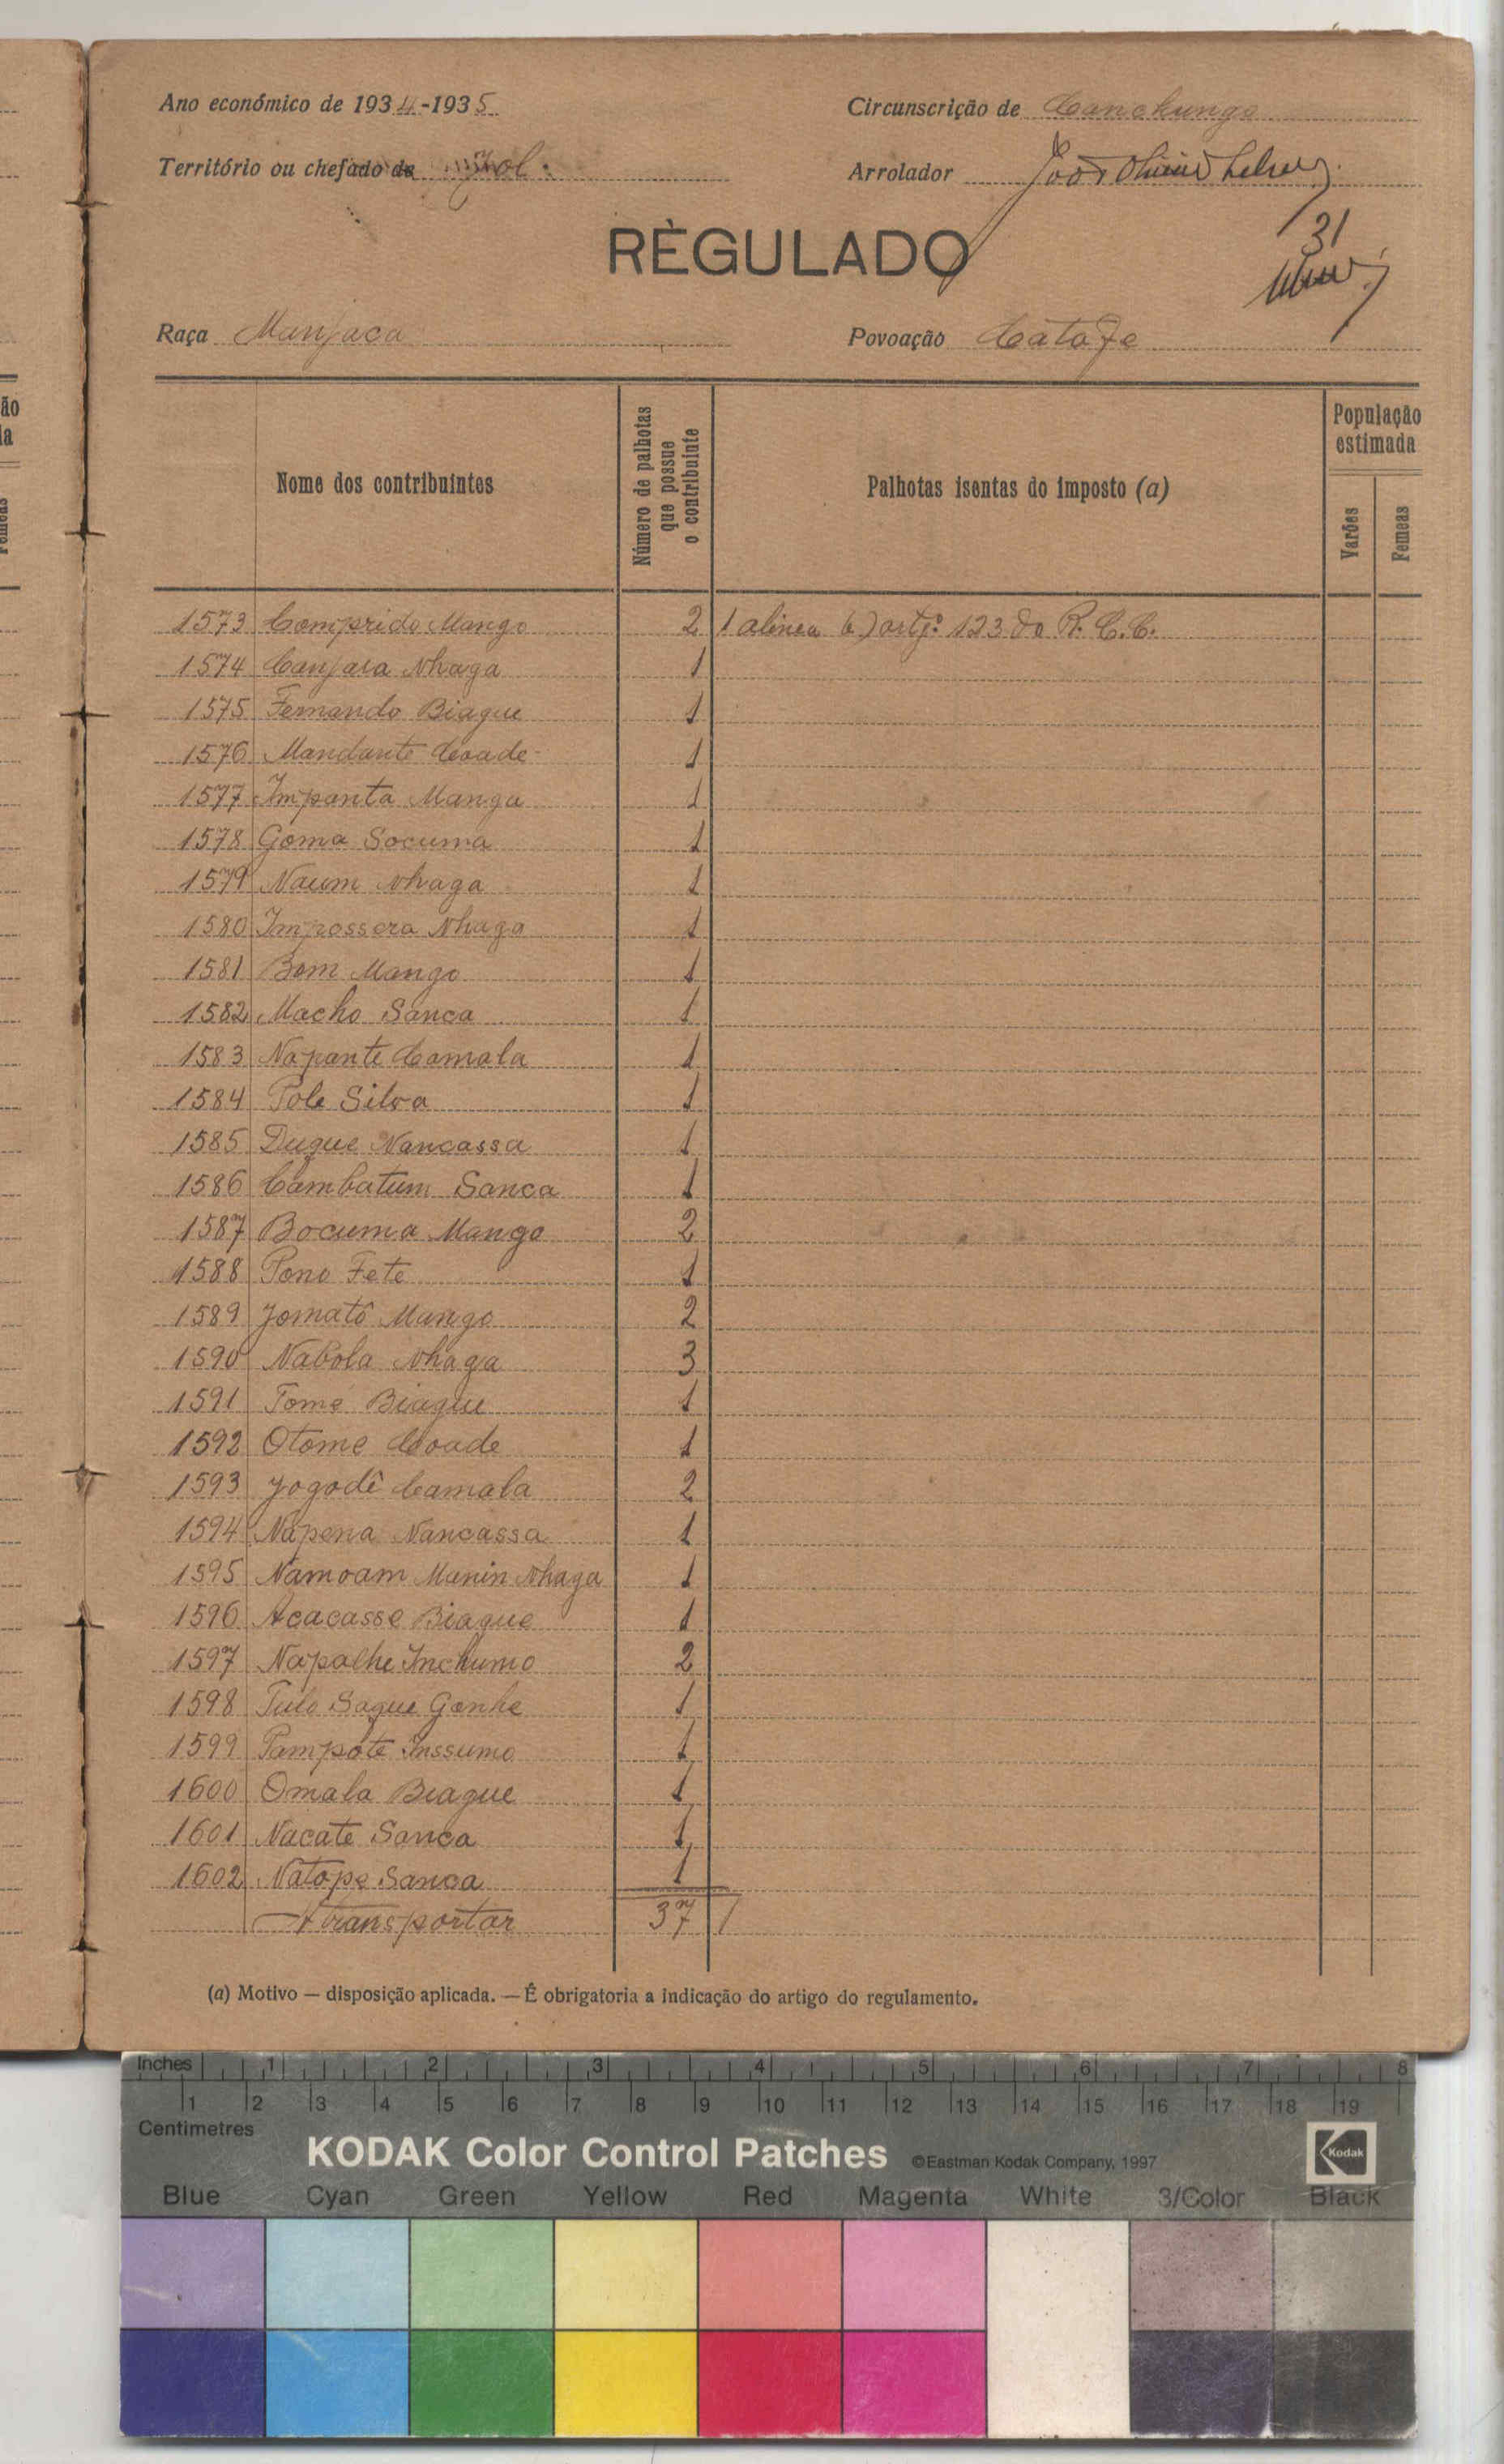 Ano económico de 1934-1935
Circunscrição de Canchungo
Território ou chefado de
Arrolador João
REGULADO
31
Raça Manjaca
Povoação Catafe
Nome dos contribuintes
Número de palhotas que possue o contribuinte
Palhotas isentas do imposto (a)
População estimada
Varões
Femeas
1573 Comprido Mango 2 1 alinea b) artg.º 123 do R. C. C.
1574 Canjara Nhaga 1
1575 Fernando Biague 1
1576 Mandante Coade 1
1577 Impanta Manga 1
1578 Goma Socuma 1
1579 Naum Nhaga 1
1580 Impossera Nhaga 1
1581 Bom Mango 1
1582 Macho Sanca 1
1583 Napante Camala 1
1584 Pole Silva 1
1585 Duque Nancassa 1
1586 Cambatum Sanca 1
1587 Bocuma Mango 2
1588 Pono Fete 1
1589 Jomatô Mango 2
1590 Nabola Nhaga 3
1591 Tomé Biague 1
1592 Otome Coade 1
1593 Jogodê Camala 2
1594 Napena Nancassa 1
1595 Namoam Manin Nhaga 1
1596 Acacasse Biague 1
1597 Napalhe Inchumo 2
1598 Tulo Sague Ganhe 1
1599 Pampote Inssumo 1
1600 Omala Biague 1
1601 Nacate Sanca 1
1602 Natope Sanca 1
A transportar 37 1
(a) Motivo — disposição aplicada. — É obrigatoria a indicação do artigo do regulamento.
Inches 1 2 3 4 5 6 7 8
1 2 3 4 5 6 7 8 9 10 11 12 13 14 15 16 17 18 19
Centimetres
KODAK Color Control Patches ©Eastman Kodak Company, 1997 Kodak
Blue Cyan Green Yellow Red Magenta White 3/Color Black